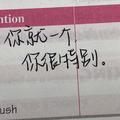 ntion
你就一个
你很特别。
ush